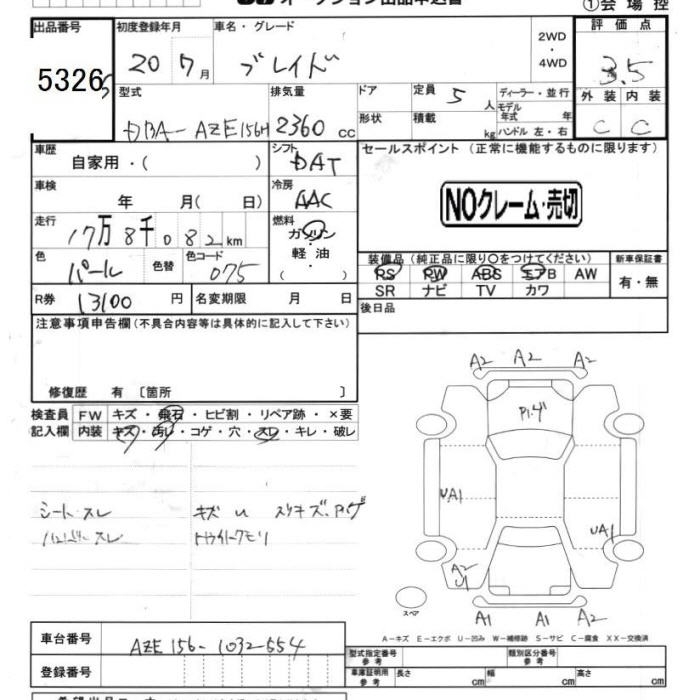 オークション出品申込書
①会場控
出品番号 初度登録年月 車名・グレード 評価点
53265 20 7月 ブレイド 2WD・4WD 3.5
型式 排気量 ドア 定員 5人 ディーラー・並行 外装 内装
DBA-AZE156H 2360cc 形状 積載 kg モデル年式 年 ハンドル 左・右 C C
車歴 シフト セールスポイント (正常に機能するものに限ります)
自家用・( ) DAT
車検 冷房
年 月( 日) AAC NOクレーム・売切
走行 燃料
17万8千082km ガソリン・軽油・( )
色 色替 色コード 装備品 (純正品に限り○をつけてください) 新車保証書
パール 075 RS PW ABS エアB AW 有・無
SR ナビ TV カワ
R券 13100円 名変期限 月 日 後日品
注意事項申告欄 (不具合内容等は具体的に記入して下さい)
修復歴 有 〔箇所 〕
検査員 FW キズ・飛石・ヒビ割・リペア跡・×要
記入欄 内装 キズ・汚レ・コゲ・穴・スレ・キレ・破レ
シートスレ キズ U スリキズ、P.ハゲ
スレ ライトクモリ
A2 A2 A2
P1.ゲ
UA1
UA1
A2
U1
スペア
A1 A1 A2
A-キズ E-エクボ U-凹み W-補修跡 S-サビ C-腐食 XX-交換済
車台番号 AZE156-1032554
型式指定番号 参考 類別区分番号 参考
登録番号
車庫証明用 参考 長さ cm 幅 cm 高さ cm